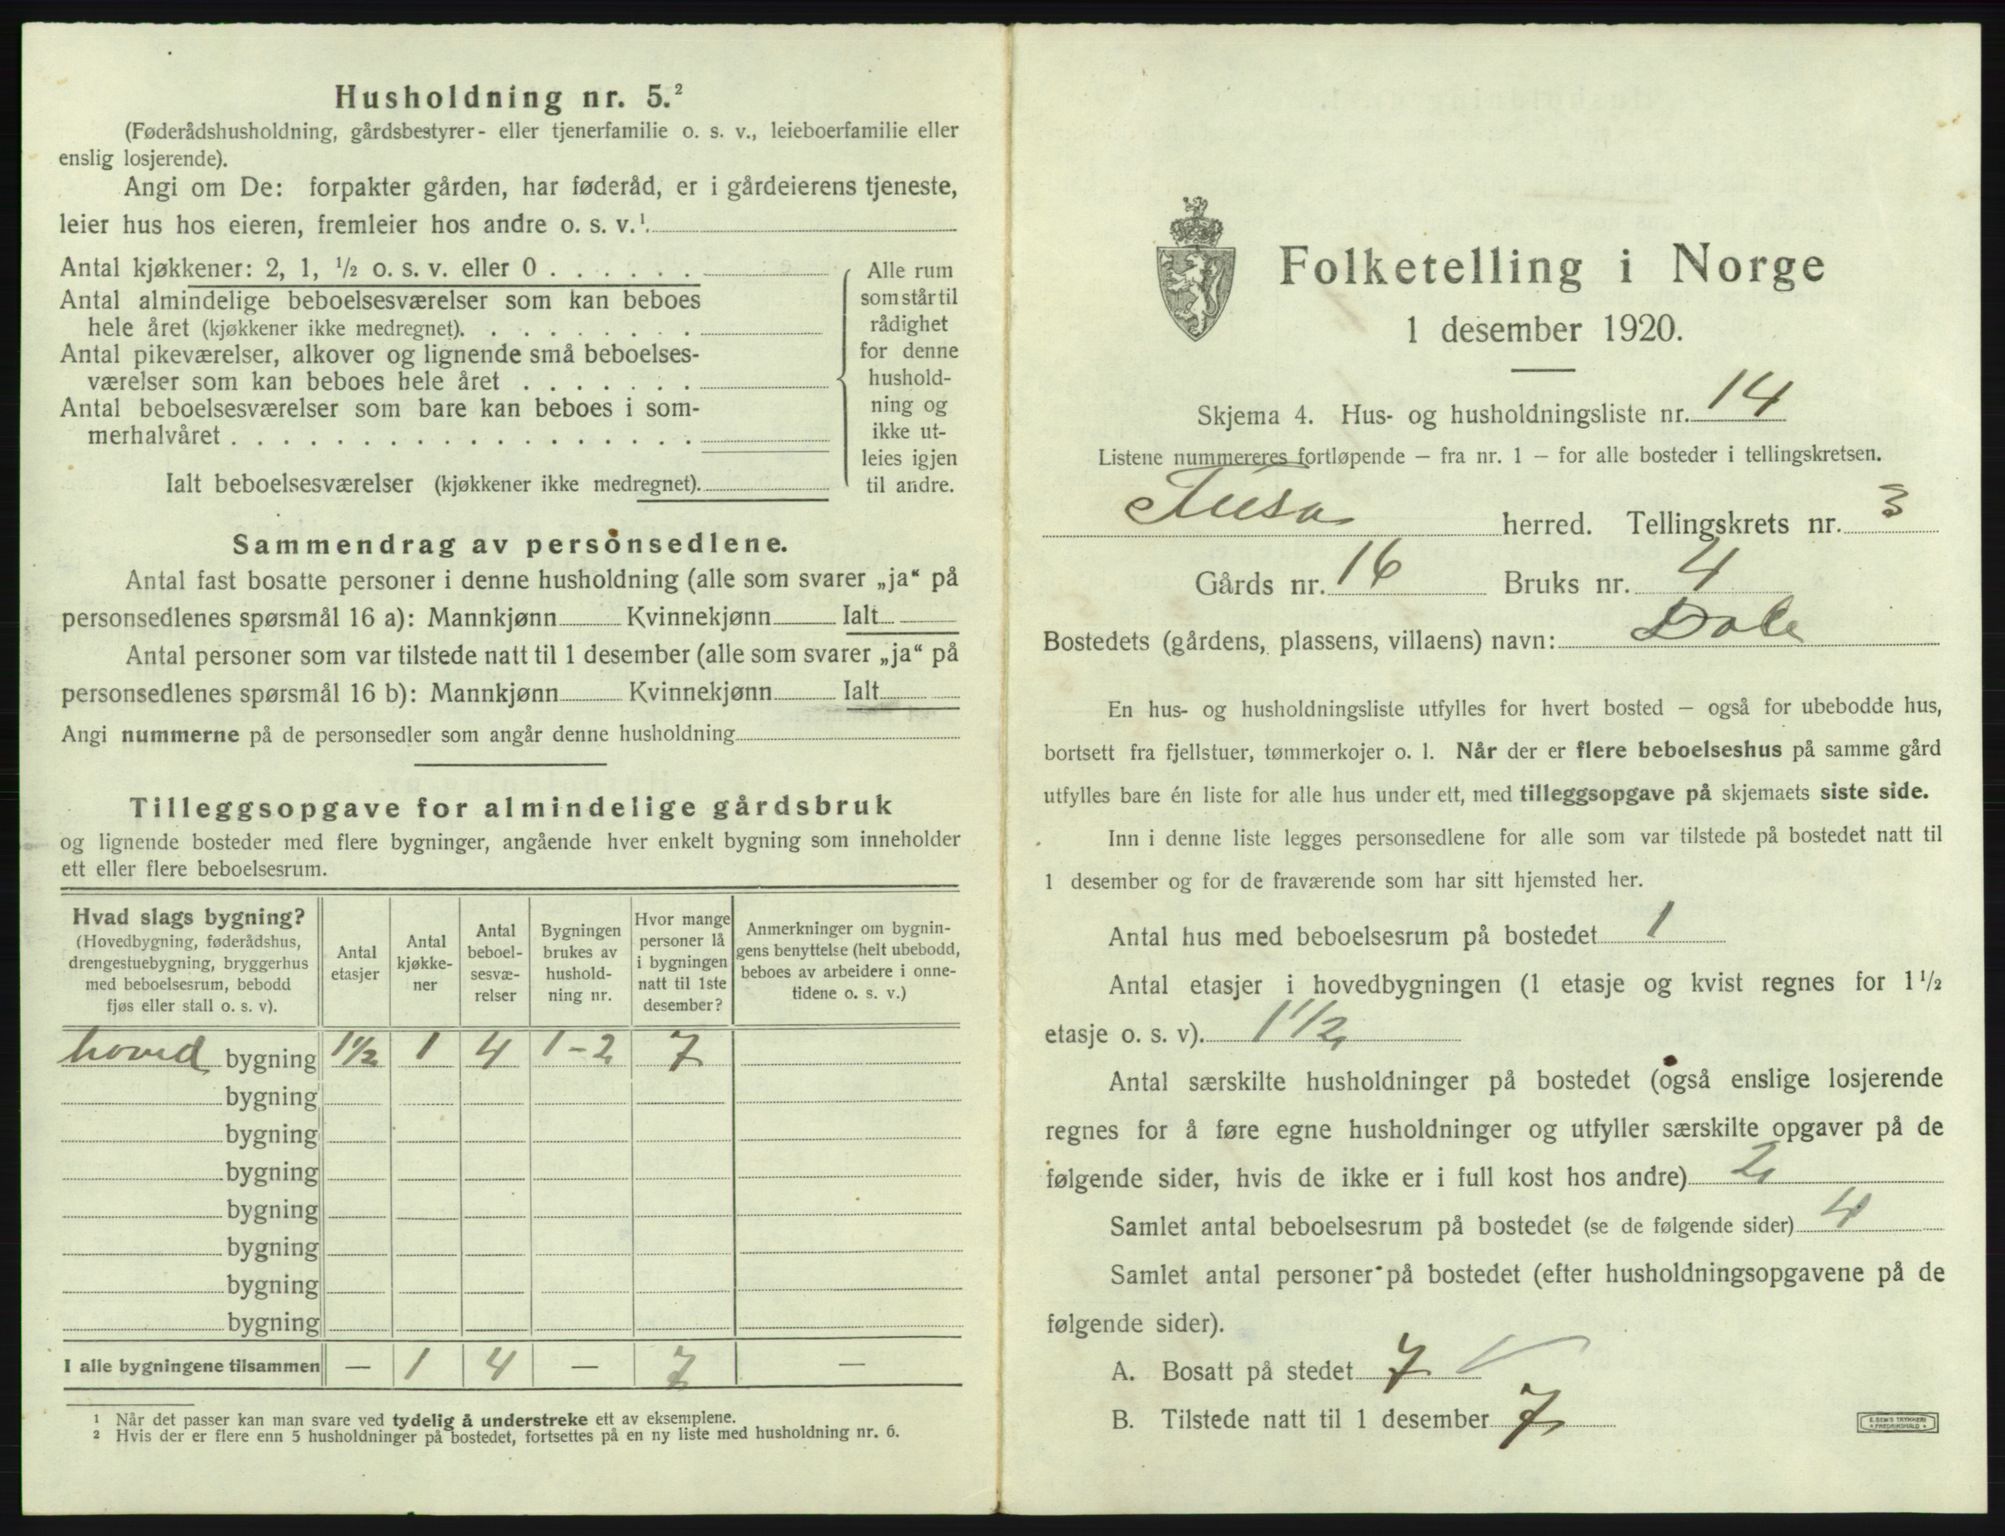 Husholdning nr. 5.²
(Føderådshusholdning, gårdsbestyrer- eller tjenerfamilie o. s. v., leieboerfamilie eller
enslig losjerende).
Angi om De: forpakter gården, har føderåd, er i gårdeierens tjeneste,
leier hus hos eieren, fremleier hos andre o. s. v.¹
Antal kjøkkener: 2, 1, ½ o. s. v. eller 0 . . . . . .
Antal almindelige beboelsesværelser som kan beboes
hele året (kjøkkener ikke medregnet). . . . . . . . .
Antal pikeværelser, alkover og lignende små beboelses-
værelser som kan beboes hele året . . . . . . .
Antal beboelsesværelser som bare kan beboes i som-
merhalvåret . . . . . . . . . . . . . . . . . .
Ialt beboelsesværelser (kjøkkener ikke medregnet).
Alle rum
som står til
rådighet
for denne
hushold-
ning og
ikke ut-
leies igjen
til andre.
Sammendrag av personsedlene.
Antal fast bosatte personer i denne husholdning (alle som svarer „ja“ på
personsedlenes spørsmål 16 a): Mannkjønn Kvinnekjønn Ialt
Antal personer som var tilstede natt til 1 desember (alle som svarer „ja“ på
personsedlenes spørsmål 16 b): Mannkjønn Kvinnekjønn Ialt
Angi nummerne på de personsedler som angår denne husholdning
Tilleggsopgave for almindelige gårdsbruk
og lignende bosteder med flere bygninger, angående hver enkelt bygning som inneholder
ett eller flere beboelsesrum.
Hvad slags bygning?
(Hovedbygning, føderådshus,
drengestuebygning, bryggerhus
med beboelsesrum, bebodd
fjøs eller stall o. s. v).
Antal
etasjer
Antal
kjøkke-
ner
Antal
beboel-
sesvæ-
relser
Bygningen
brukes av
hushold-
ning nr.
Hvor mange
personer lå
i bygningen
natt til 1ste
desember?
Anmerkninger om bygnin-
gens benyttelse (helt ubebodd,
beboes av arbeidere i onne-
tidene o. s. v.)
hoved bygning 1½ 1 4 1-2 7
bygning
bygning
bygning
bygning
bygning
bygning
bygning
I alle bygningene tilsammen — 1 4 — 7 —
¹ Når det passer kan man svare ved tydelig å understreke ett av eksemplene.
² Hvis der er flere enn 5 husholdninger på bostedet, fortsettes på en ny liste med husholdning nr. 6.
Folketelling i Norge
1 desember 1920.
Skjema 4. Hus- og husholdningsliste nr. 14
Listene nummereres fortløpende — fra nr. 1 — for alle bosteder i tellingskretsen.
Fusa herred. Tellingskrets nr. 3
Gårds nr. 16 Bruks nr. 4
Bostedets (gårdens, plassens, villaens) navn: Dale
En hus- og husholdningsliste utfylles for hvert bosted — også for ubebodde hus,
bortsett fra fjellstuer, tømmerkojer o. l. Når der er flere beboelseshus på samme gård
utfylles bare én liste for alle hus under ett, med tilleggsopgave på skjemaets siste side.
Inn i denne liste legges personsedlene for alle som var tilstede på bostedet natt til
1 desember og for de fraværende som har sitt hjemsted her.
Antal hus med beboelsesrum på bostedet 1
Antal etasjer i hovedbygningen (1 etasje og kvist regnes for 1½
etasje o. s. v). 1½
Antal særskilte husholdninger på bostedet (også enslige losjerende
regnes for å føre egne husholdninger og utfyller særskilte opgaver på de
følgende sider, hvis de ikke er i full kost hos andre) 2
Samlet antal beboelsesrum på bostedet (se de følgende sider) 4
Samlet antal personer på bostedet (efter husholdningsopgavene på de
følgende sider).
A. Bosatt på stedet 7
B. Tilstede natt til 1 desember 7
E. SEM'S TRYKKERI
FREDRIKSHALD